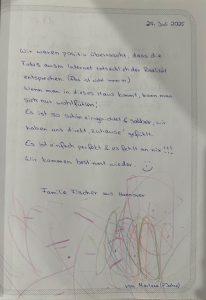 29. Juli 2025
Wir waren positiv überrascht, dass die
Fotos aus'm Internet tatsächlich der Realität
entsprechen. (Das ist oft nicht so)
Wenn man in dieses Haus kommt, kann man
sich nur wohlfühlen!
Es ist so schön eingerichtet & sauber, wir
haben uns direkt „zuhause" gefühlt.
Es ist einfach perfekt & es fehlt an nix!!!
Wir kommen bestimmt wieder
Familie Fischer aus Hannover
von Marlene